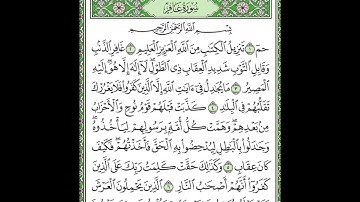 سُورَةُ غَافِرٍ
بِسْمِ اللَّهِ الرَّحْمَٰنِ الرَّحِيمِ
حمٓ ١ تَنزِيلُ الْكِتَٰبِ مِنَ اللَّهِ الْعَزِيزِ الْعَلِيمِ ٢ غَافِرِ الذَّنۢبِ
وَقَابِلِ التَّوْبِ شَدِيدِ الْعِقَابِ ذِي الطَّوْلِ لَآ إِلَٰهَ إِلَّا هُوَ إِلَيْهِ
الْمَصِيرُ ٣ مَا يُجَٰدِلُ فِيٓ ءَايَٰتِ اللَّهِ إِلَّا الَّذِينَ كَفَرُوا فَلَا يَغْرُرْكَ
تَقَلُّبُهُمْ فِي الْبِلَٰدِ ٤ كَذَّبَتْ قَبْلَهُمْ قَوْمُ نُوحٍ وَالْأَحْزَابُ
مِنۢ بَعْدِهِمْ وَهَمَّتْ كُلُّ أُمَّةٍۭ بِرَسُولِهِمْ لِيَأْخُذُوهُ
وَجَٰدَلُوا بِالْبَٰطِلِ لِيُدْحِضُوا بِهِ الْحَقَّ فَأَخَذْتُهُمْ فَكَيْفَ
كَانَ عِقَابِ ٥ وَكَذَٰلِكَ حَقَّتْ كَلِمَتُ رَبِّكَ عَلَى الَّذِينَ
كَفَرُوٓا أَنَّهُمْ أَصْحَٰبُ النَّارِ ٦ الَّذِينَ يَحْمِلُونَ الْعَرْشَ